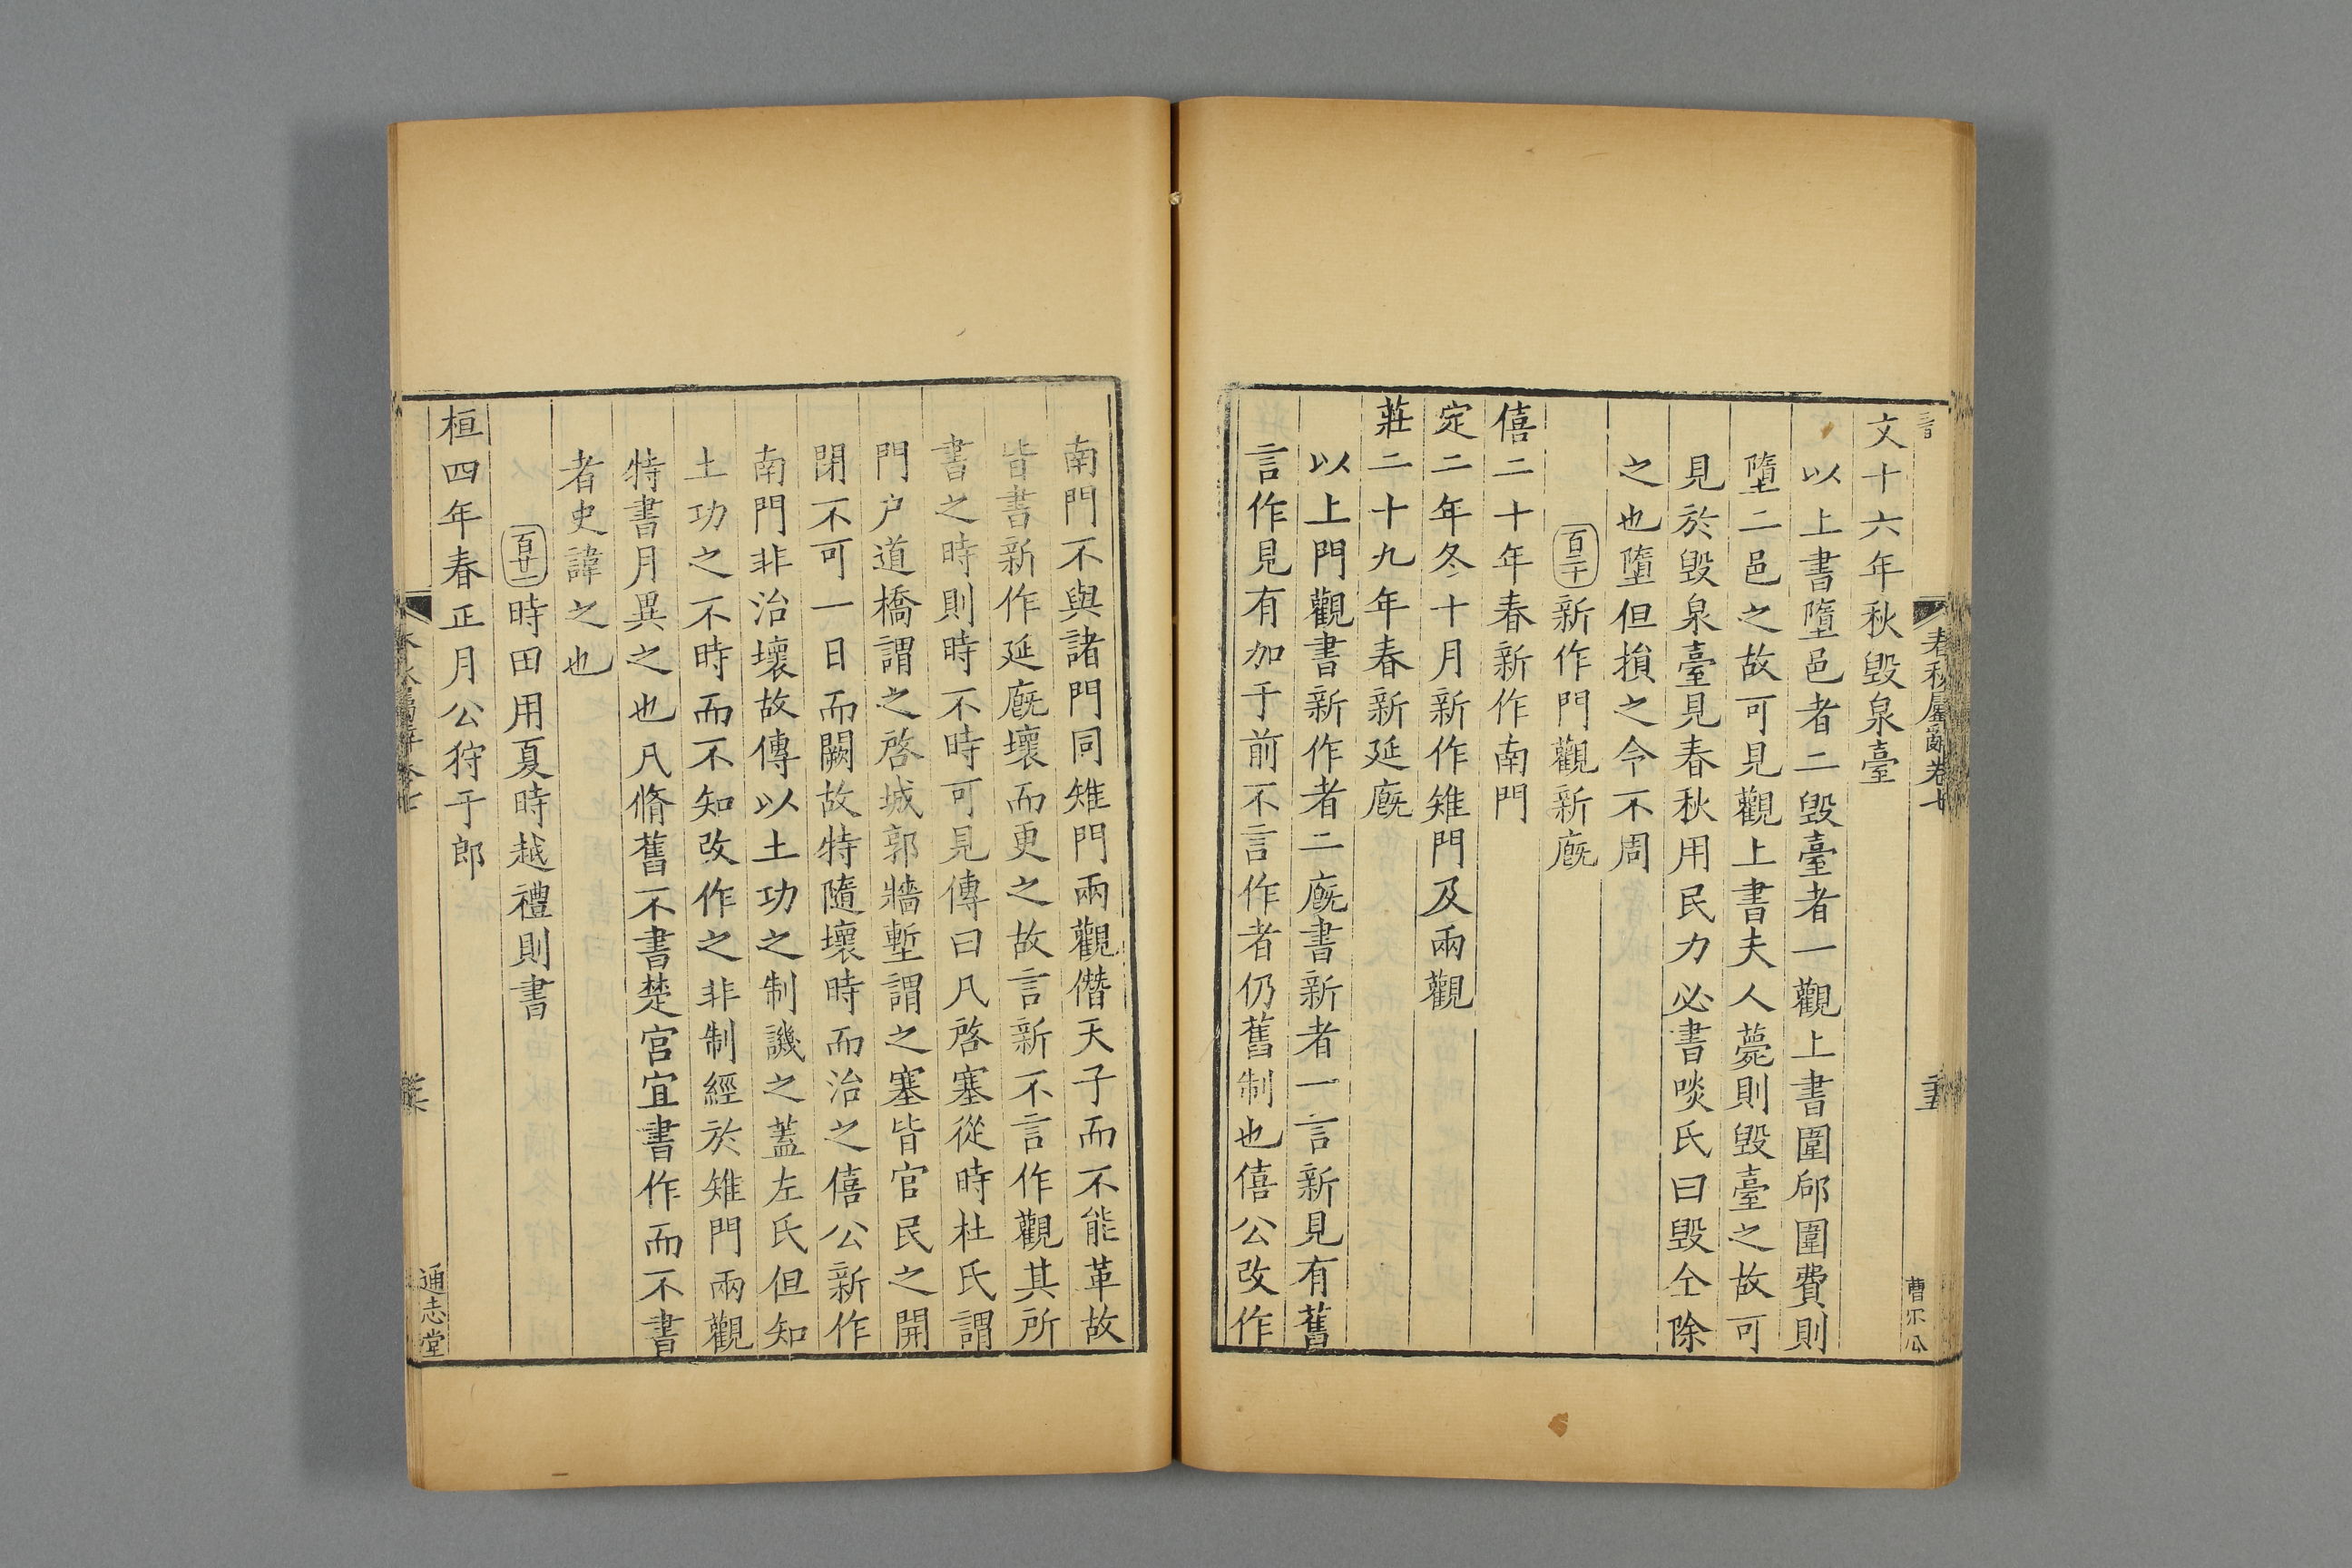 文十六年秋毀泉臺
以上書墮邑者二毀臺者一觀上書圍郈圍費則
墮二邑之故可見觀上書夫人薨則毀臺之故可
見於毀泉臺見春秋用民力必書啖氏曰毀仝除
之也墮但損之今不周
百二十新作門觀新廐
僖二十年春新作南門
定二年冬十月新作雉門及兩觀
莊二十九年春新延廐
以上門觀書新作者二廐書新者一言新見有舊
言作見有加于前不言作者仍舊制也僖公改作
南門不與諸門同雉門兩觀僭天子而不能革故
皆書新作延廐壞而更之故言新不言作觀其所
書之時則時不時可見傳曰凡啓塞從時杜氏謂
門户道橋謂之啓城郭牆塹謂之塞皆官民之開
閉不可一日而闕故特隨壞時而治之僖公新作
南門非治壞故傳以土功之制譏之蓋左氏但知
土功之不時而不知改作之非制經於雉門兩觀
特書月異之也凡脩舊不書楚宫宜書作而不書
者史諱之也
百廿一時田用夏時越禮則書
桓四年春正月公狩于郎
通志堂